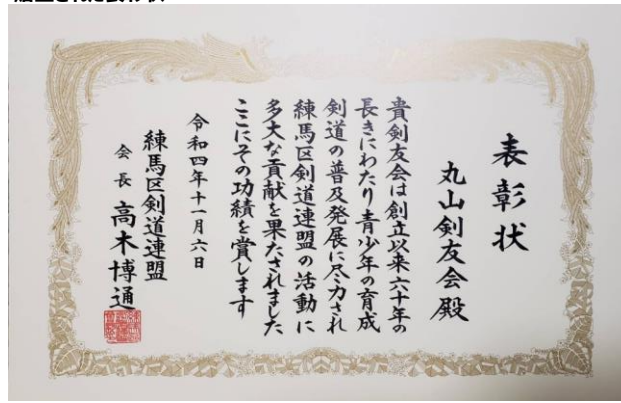 表彰状
丸山剣友会殿
貴剣友会は創立以来六十年の
長きにわたり青少年の育成
剣道の普及発展に尽力され
練馬区剣道連盟の活動に
多大な貢献を果たされました
ここにその功績を賞します
令和四年十一月六日
練馬区剣道連盟
会長 高木博通